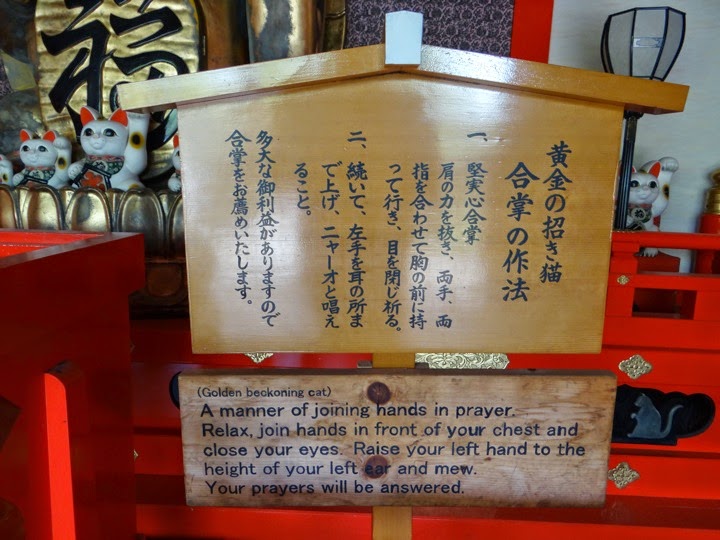 黄金の招き猫
合掌の作法
一、堅実心合掌
肩の力を抜き、両手、両
指を合わせて胸の前に持
って行き、目を閉じ祈る。
二、続いて、左手を耳の所ま
で上げ、ニャーオと唱え
ること。
多大な御利益がありますので
合掌をお薦めいたします。
(Golden beckoning cat)
A manner of joining hands in prayer.
Relax, join hands in front of your chest and
close your eyes. Raise your left hand to the
height of your left ear and mew.
Your prayers will be answered.